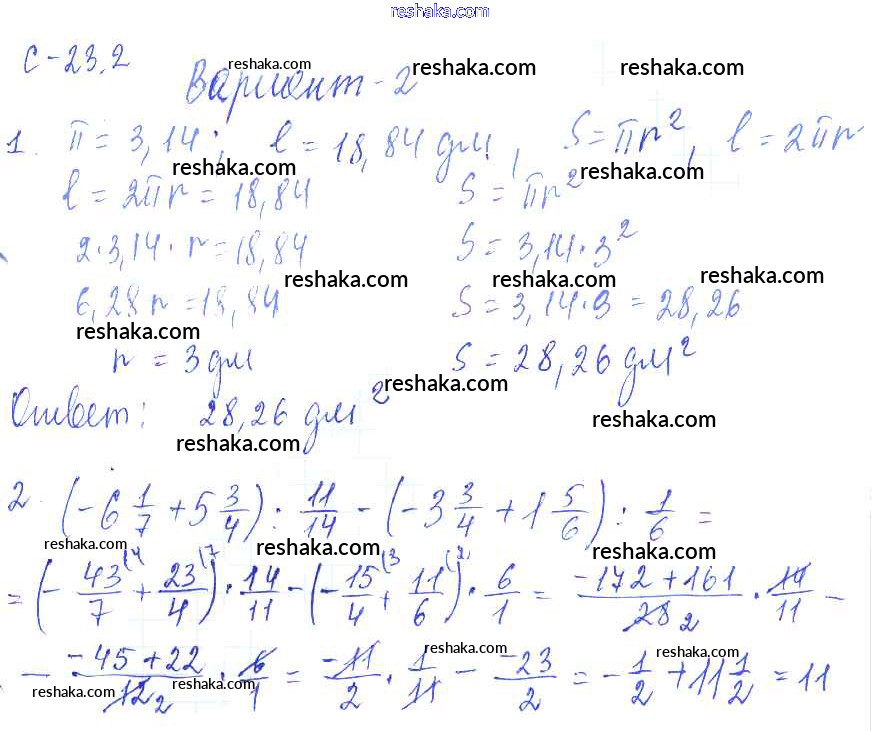 reshaka.com
С-23.2
Вариант-2
reshaka.com reshaka.com reshaka.com
1. π = 3,14; l = 18,84 дм, S = πr², l = 2πr
reshaka.com reshaka.com
l = 2πr = 18,84 S = πr²
reshaka.com
2·3,14·r = 18,84 S = 3,14·3²
reshaka.com reshaka.com reshaka.com
6,28r = 18,84 S = 3,14·9 = 28,26
reshaka.com
r = 3 дм S = 28,26 дм²
reshaka.com
Ответ: 28,26 дм²
reshaka.com reshaka.com
2. (-6 1/7 + 5 3/4) : 11/14 - (-3 3/4 + 1 5/6) : 1/6 =
reshaka.com reshaka.com reshaka.com
= (- 43/7 (4 + 23/4 (7) · 14/11 - (- 15/4 (3 + 11/6 (2) · 6/1 = -172+161/28 2 · 14/11 -
reshaka.com reshaka.com
- -45+22/12 2 · 6/1 = -11/2 · 1/11 - -23/2 = -1/2 + 11 1/2 = 11
reshaka.com reshaka.com reshaka.com reshaka.com